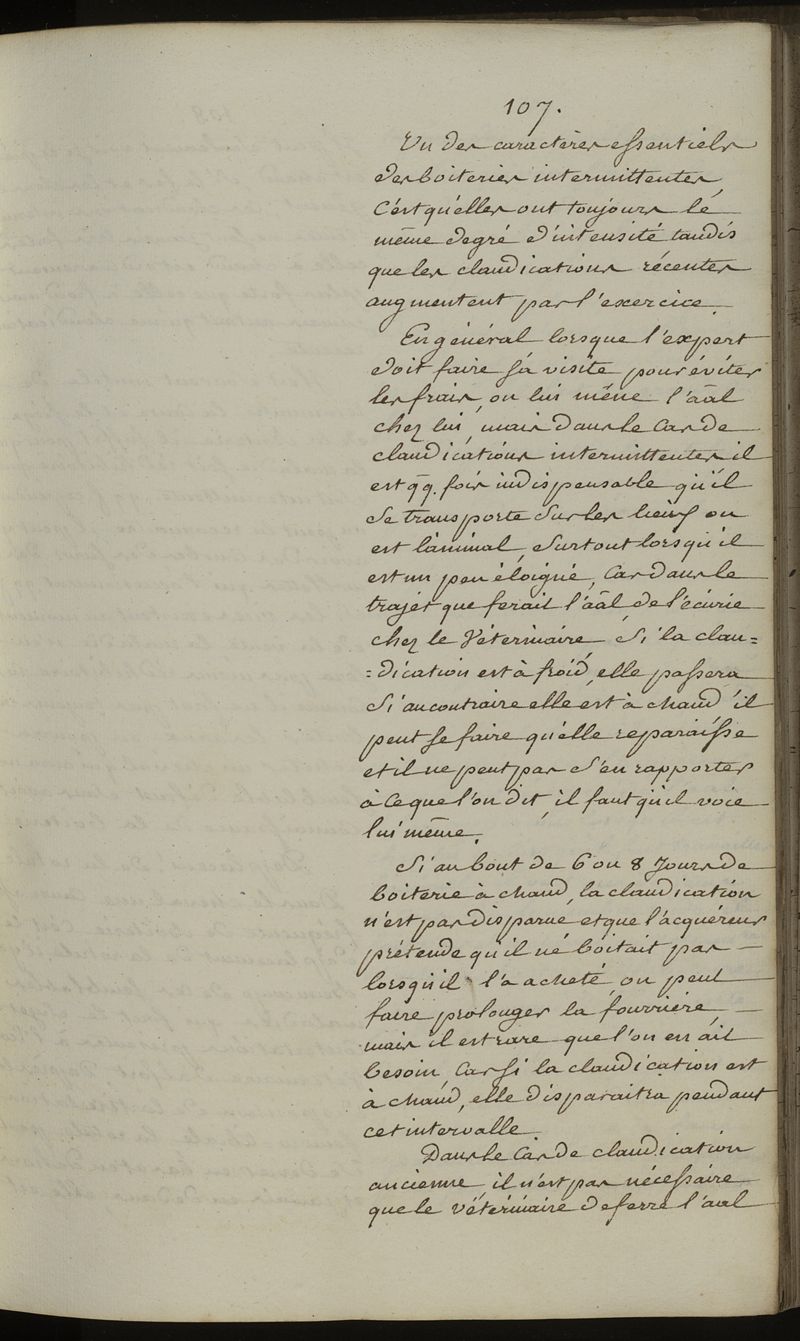 107.
Un des caractères essentiels
des boiteries intermittentes,
C'est qu'elles ont toujours le
même degré d'intensité tandis
que les claudications récentes
augmentent par l'exercice.
En général lorsque l'expert
doit faire sa visite pour éviter
les frais, on lui mène l'aâl
chez lui, mais dans le cas de
claudications intermittentes il
est qq. fois indispensable qu'il
se transporte sur les lieux où
est l'animal, surtout lorsqu'il
est un peu éloigné, Car dans le
trajet que ferait l'aâl de l'écurie
chez le Véterinaire, Si la clau=
=dication est à froid, elle passera
Si au contraire elle est à chaud il
peut se faire qu'elle reparaisse
et il ne peut pas s'en rapporter
à ce que l'on dit, il faut qu'il voie
lui même.
Si au bout de 6 ou 8 Jours de
boiterie à chaud, la claudication
n'est pas disparue et que l'acquéreur
prétende qu'il ne boitait pas —
lorsqu'il l'a acheté, on peut
faire prolonger la fourrière, —
mais il est rare que l'on en ait
besoin, Car si la claudication est
à chaud, elle disparaitra pendant
cet intervalle.
Dans le Cas de claudication
ancienne, il n'est pas nécessaire
que le véterinaire deferre l'aal